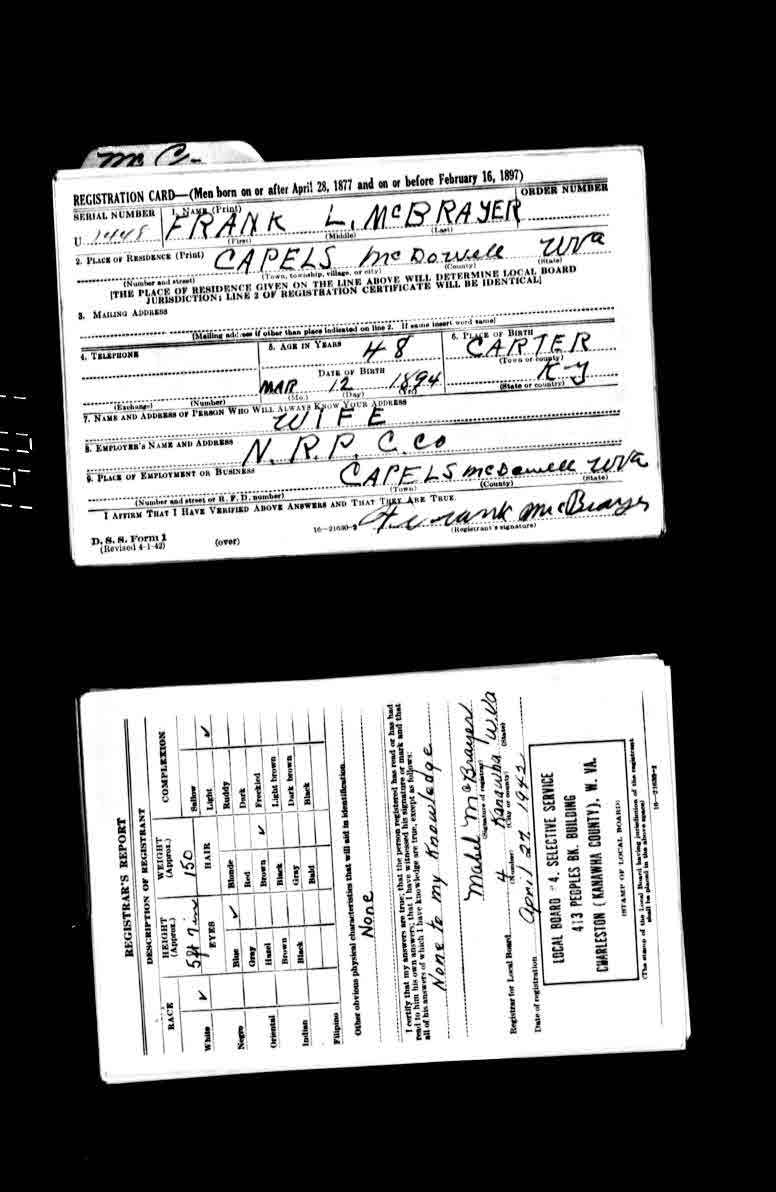 Mc C-
REGISTRATION CARD—(Men born on or after April 28, 1877 and on or before February 16, 1897)
SERIAL NUMBER 1. NAME (Print) ORDER NUMBER
U 1448 FRANK L. McBRAYER
(First) (Middle) (Last)
2. PLACE OF RESIDENCE (Print)
CAPELS McDowell WVa
(Number and street) (Town, township, village, or city) (County) (State)
[THE PLACE OF RESIDENCE GIVEN ON THE LINE ABOVE WILL DETERMINE LOCAL BOARD
JURISDICTION; LINE 2 OF REGISTRATION CERTIFICATE WILL BE IDENTICAL]
3. MAILING ADDRESS
(Mailing address if other than place indicated on line 2. If same insert word same)
4. TELEPHONE 5. AGE IN YEARS 6. PLACE OF BIRTH
48 CARTER
(Town or county)
DATE OF BIRTH
MAR 12 1894 Ky
(Exchange) (Number) (Mo.) (Day) (Yr.) (State or country)
7. NAME AND ADDRESS OF PERSON WHO WILL ALWAYS KNOW YOUR ADDRESS
WIFE
8. EMPLOYER'S NAME AND ADDRESS
N. R. P. C. Co
9. PLACE OF EMPLOYMENT OR BUSINESS
CAPELS McDowell WVa
(Number and street or R. F. D. number) (Town) (County) (State)
I AFFIRM THAT I HAVE VERIFIED ABOVE ANSWERS AND THAT THEY ARE TRUE.
Frank McBrayer
D. S. S. Form 1 16—21630-2 (Registrant's signature)
(Revised 4-1-42) (over)
REGISTRAR'S REPORT
DESCRIPTION OF REGISTRANT
RACE HEIGHT (Approx.) WEIGHT (Approx.) COMPLEXION
5 ft 7 in 150
EYES HAIR
White ✓ Blue ✓ Blonde Sallow
Light ✓
Negro Gray Red Ruddy
Dark
Oriental Hazel Brown ✓ Freckled
Brown Black Light brown
Indian Black Gray Dark brown
Bald Black
Filipino
Other obvious physical characteristics that will aid in identification
None
I certify that my answers are true; that the person registered has read or has had
read to him his own answers; that I have witnessed his signature or mark and that
all of his answers of which I have knowledge are true, except as follows:
None to my Knowledge
Mabel McBrayer
(Signature of registrar)
Registrar for Local Board 4 Kanawha W.Va
(Number) (City or county) (State)
Date of registration April 27, 1942
LOCAL BOARD #4, SELECTIVE SERVICE
413 PEOPLES BK. BUILDING
CHARLESTON (KANAWHA COUNTY), W. VA.
(STAMP OF LOCAL BOARD)
(The stamp of the Local Board having jurisdiction of the registrant
shall be placed in the above space)
16—21630-2